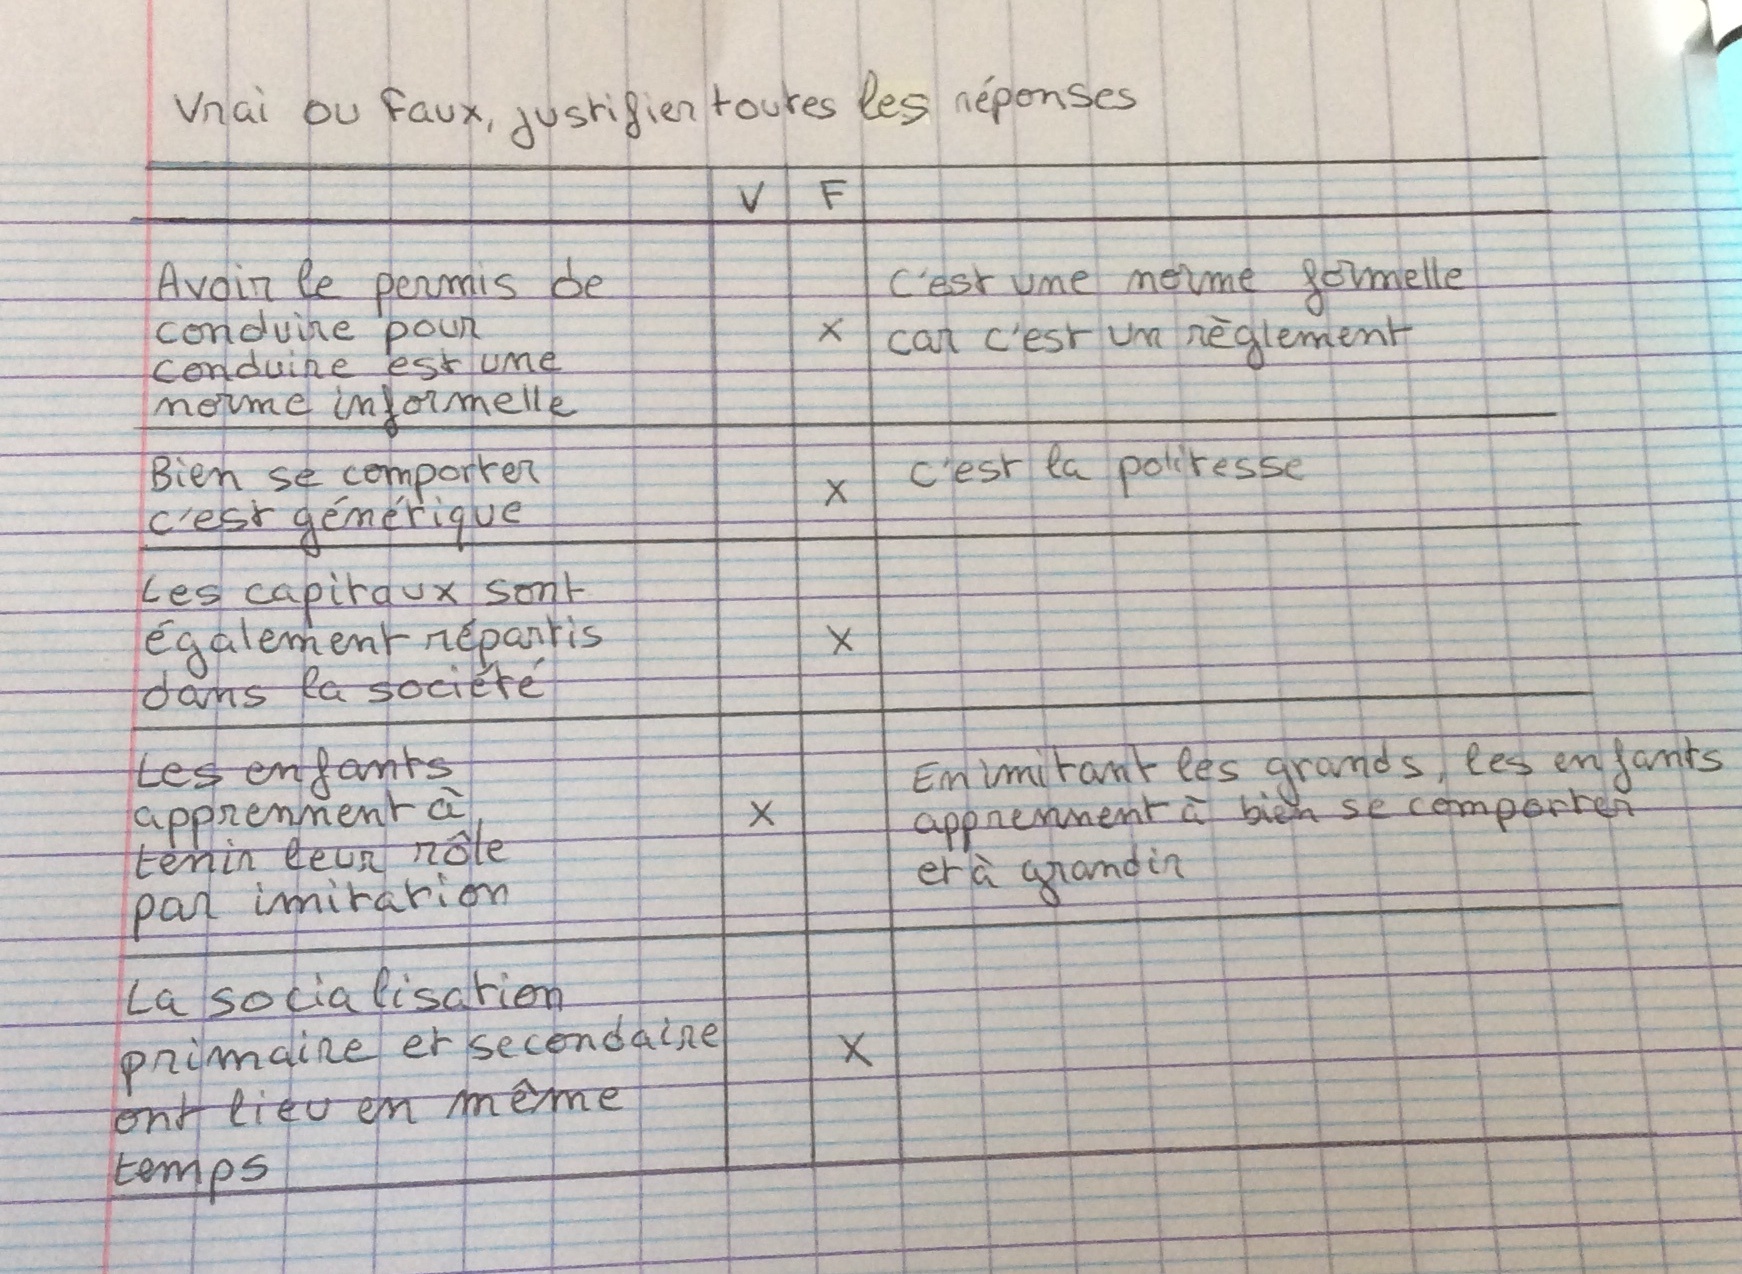 Vrai ou Faux, justifier toutes les réponses
V F
Avoir le permis de
conduire pour
conduire est une
norme informelle
X
c'est une norme formelle
car c'est un règlement
Bien se comporter
c'est générique
X
c'est la politesse
Les capitaux sont
également répartis
dans la société
X
Les enfants
apprennent à
tenir leur rôle
par imitation
X
En imitant les grands, les enfants
apprennent à bien se comporter
et à grandir
La socialisation
primaire et secondaire
ont lieu en même
temps
X